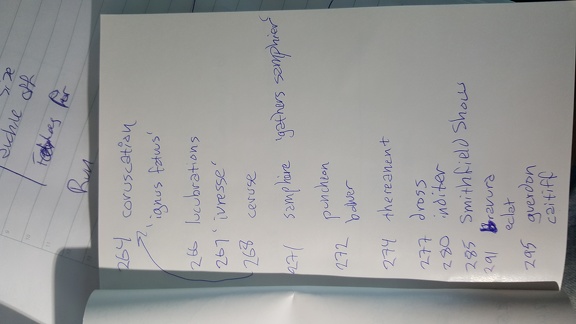 264 coruscation
'ignus fatus'
266 lucubrations
267 'ivresse'
268 ceruse
271 samphire 'gathers samphier'
272 puncheon
274 thereanent
277 dross
280 inditer
285 Smithfield Show
291 bravura
eclat
295 guerdon
caitiff
Run